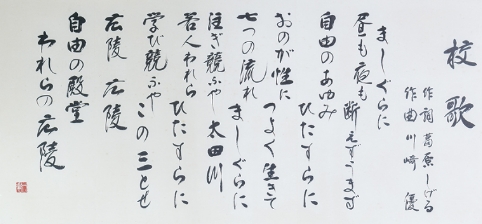 校歌
作詞 葛原しげる
作曲 川崎 優
ましぐらに
昼も夜も 断えずうまず
自由のあゆみ
ひたすらに
おのが性に
つよく生きて
七つの流れ
ましぐらに
注ぎ競ふや 太田川
若人われら ひたすらに
学び競ふや この三とせ
広陵 広陵
自由の殿堂
われらの広陵